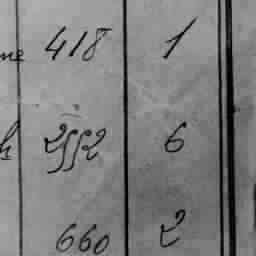 ne 418 1
2552 6
660 2